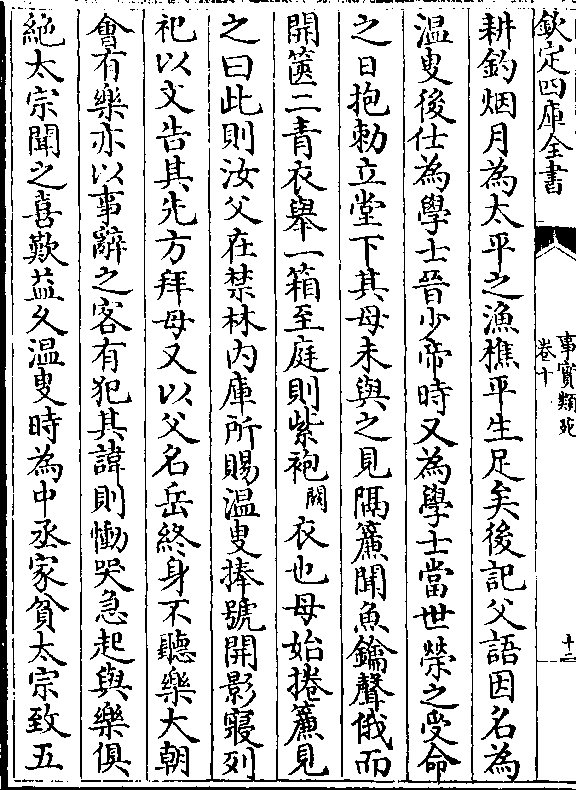 欽定四庫全書
事實類苑
卷十
十二
耕釣烟月為太平之漁樵平生足矣後記父語因名為
温叟後仕為學士晉少帝時又為學士當世榮之受命
之日抱勅立堂下其母未與之見隔簾聞魚鑰聲俄而
開篋二青衣舉一箱至庭則紫袍闕衣也母始捲簾見
之曰此則汝父在禁林内庫所賜温叟捧號開影寢列
祀以文告其先方拜母又以父名岳終身不聽樂大朝
會有樂亦以事辭之客有犯其諱則慟哭急起與樂俱
絶太宗聞之喜歎益久温叟時為中丞家貧太宗致五